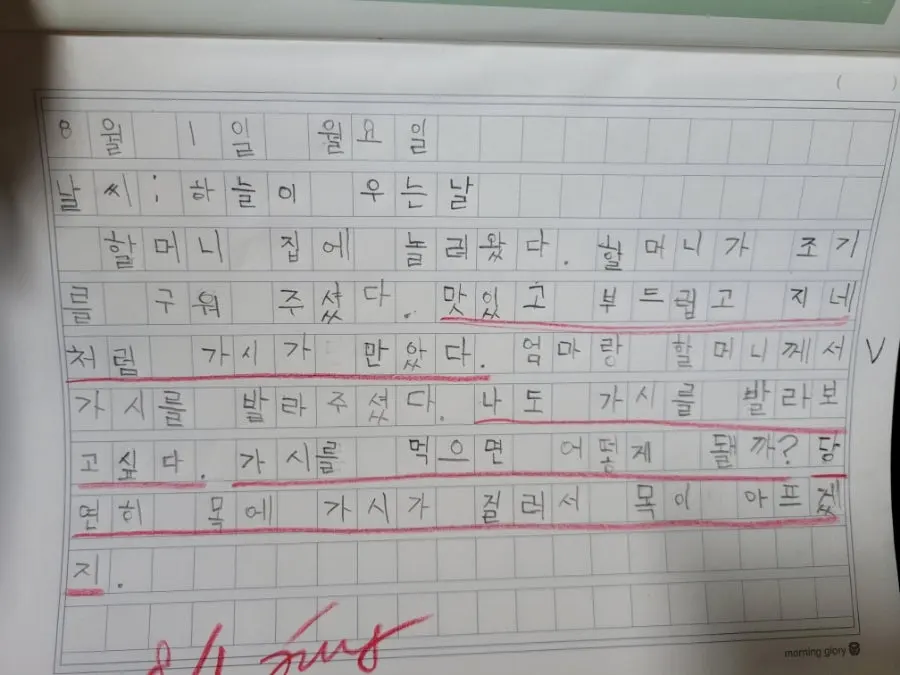 8월 1일 월요일
날씨: 하늘이 우는날
할머니 집에 놀러왔다. 할머니가 조기
를 구워 주셨다. 맛있고 부드럽고 지네
처럼 가시가 만았다. 엄마랑 할머니께서
가시를 발라주셨다. 나도 가시를 발라보
고싶다. 가시를 먹으면 어떻게 될까? 당
연히 목에 가시가 질러서 목이 아프겠
지.
8/1
morning glory